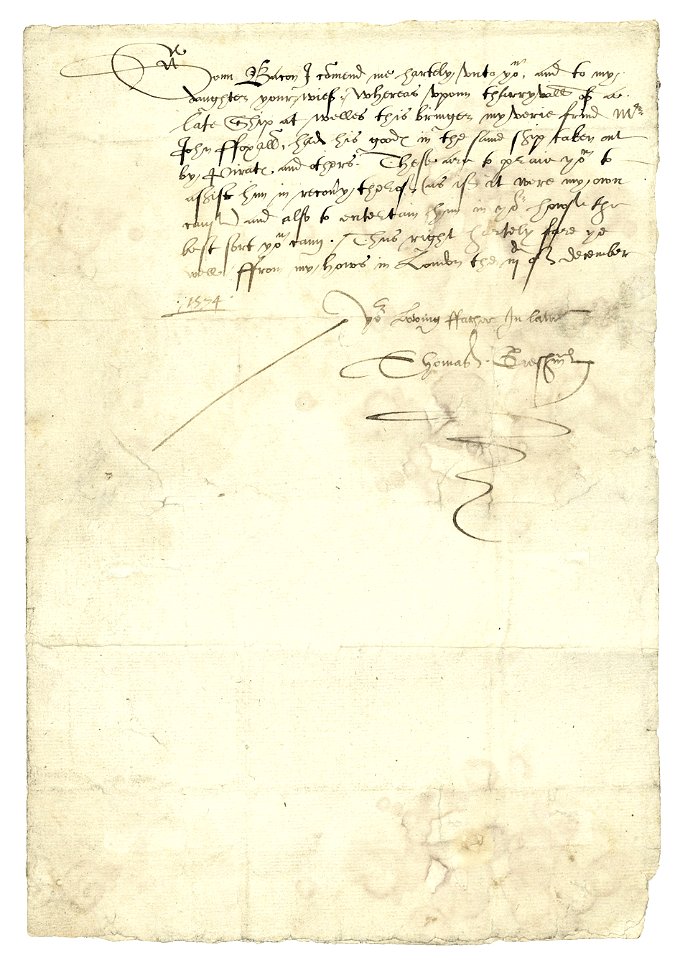 Sonn Bacon I comend me hartely unto yor, and to my
daughter your wief, Whereas upon tharryvall of a
late Ship at Welles this bringer my verie frind Mr
John ffoxall, had his goodes in the said ship taken out
by Pirates and others. These are to praie yow to
assist him in recovery thereof (as if it were my own
cause) and also to entertain hym in yor howse the
best sort yow cann. Thus right hartely fare ye
well. ffrom my hows in London the of december
1574
Yor Loving ffather In lawe
Thomas Gresham